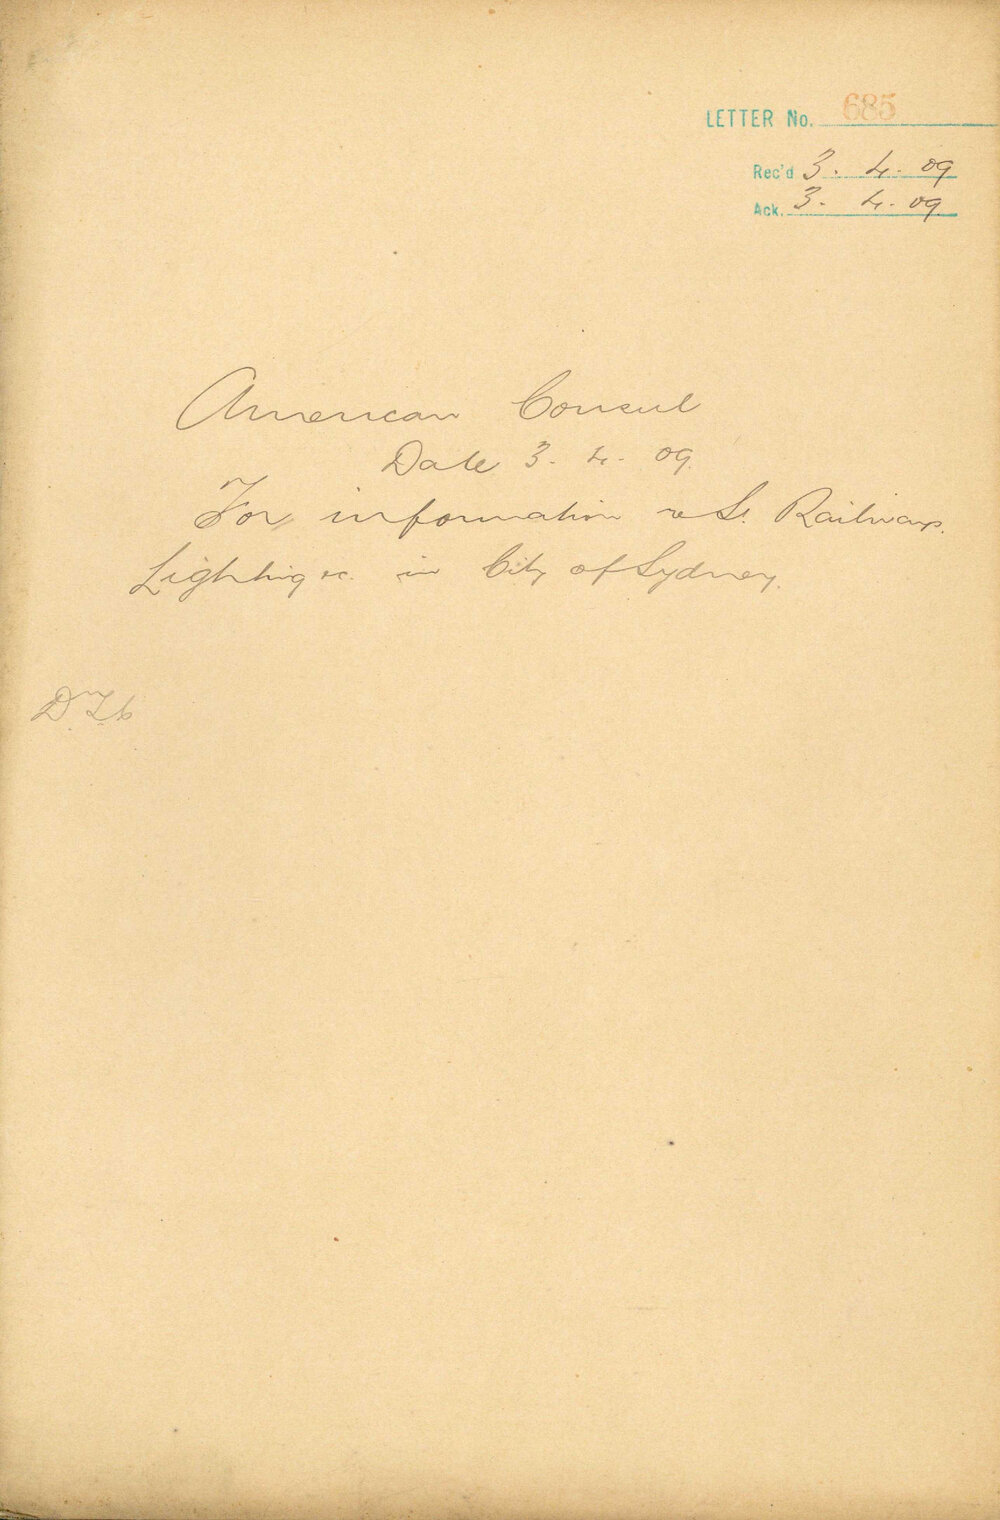 LETTER No. 685
Rec'd 3. 4. 09
Ack. 3. 4. 09
American Consul
Date 3. 4. 09.
For information re St. Railways.
Lighting &c. in City of Sydney.